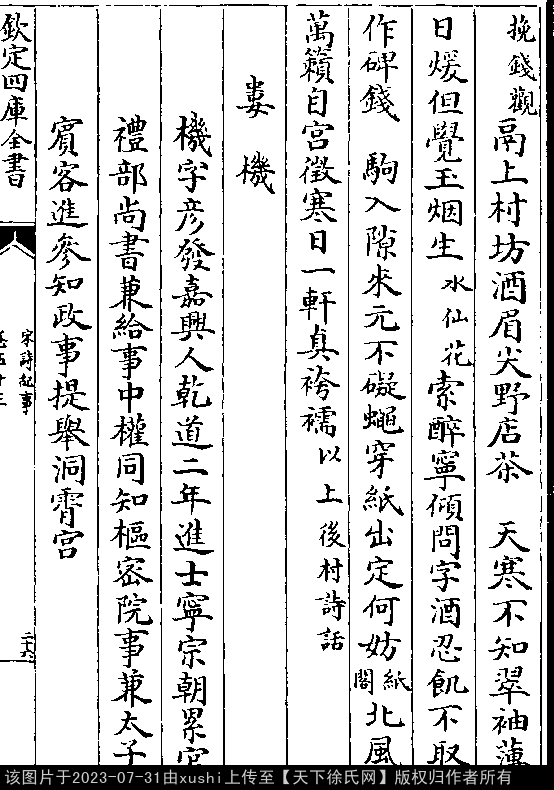 挽錢觀鬲上村坊酒眉尖野店茶　天寒不知翠袖薄
日煖但覺玉烟生水仙花索醉寧傾問字酒忍飢不取
作碑錢　駒入隙來元不礙蠅穿紙出定何妨紙閣北風
萬籟自宮徵寒日一軒真袴襦以上後村詩話
婁機
機字彦發嘉興人乾道二年進士寧宗朝累官
禮部尚書兼給事中權同知樞密院事兼太子
賓客進參知政事提舉洞霄宮
欽定四庫全書
宋詩紀事
卷五十三
二十六
该图片于2023-07-31由xushi上传至【天下徐氏网】版权归作者所有